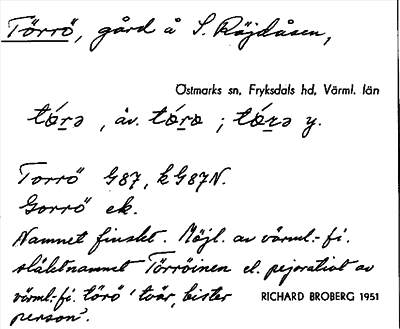 Törrö, gård å S. Röjdåsen,
Östmarks sn, Fryksdals hd, Värml. län
tǿrə, äv. tǿrø; tǿrə y.
Torrö G87, k G87N.
Gorrö ek.
Namnet finskt. Möjl. av värml.-fi.
släktnamnet Törröinen el. pejorativt av
värml.-fi. törö 'tvär, bister
person'.
RICHARD BROBERG 1951